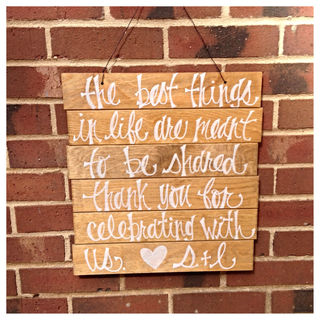 the best things
in life are meant
to be shared
thank you for
celebrating with
us. ♥ s+l